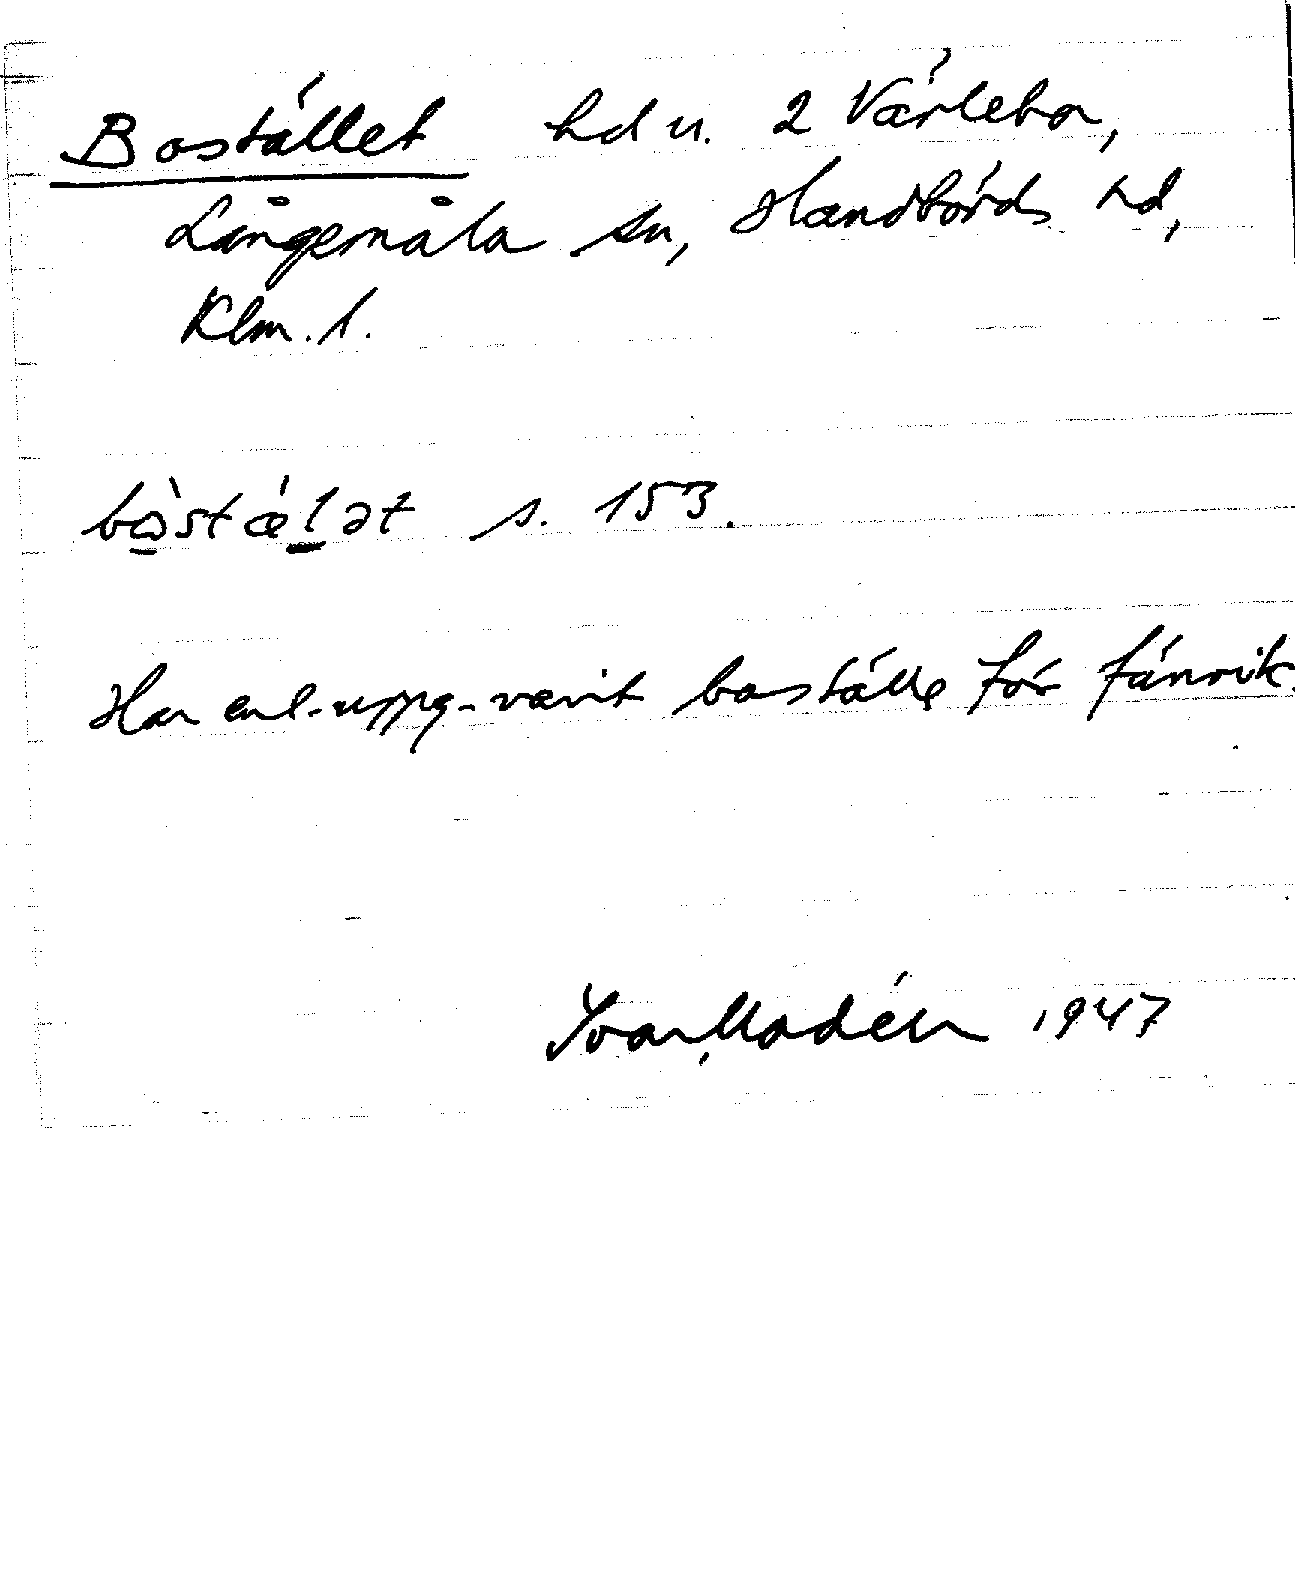 Bostället hd u. 2 Värlebo,
Långemåla sn, Handbörds hd,
Klm. l.
bò̱stǽl̲ət s. 153.
Har enl. uppg. varit boställe för fänrik.
Ivar Modéer 1947